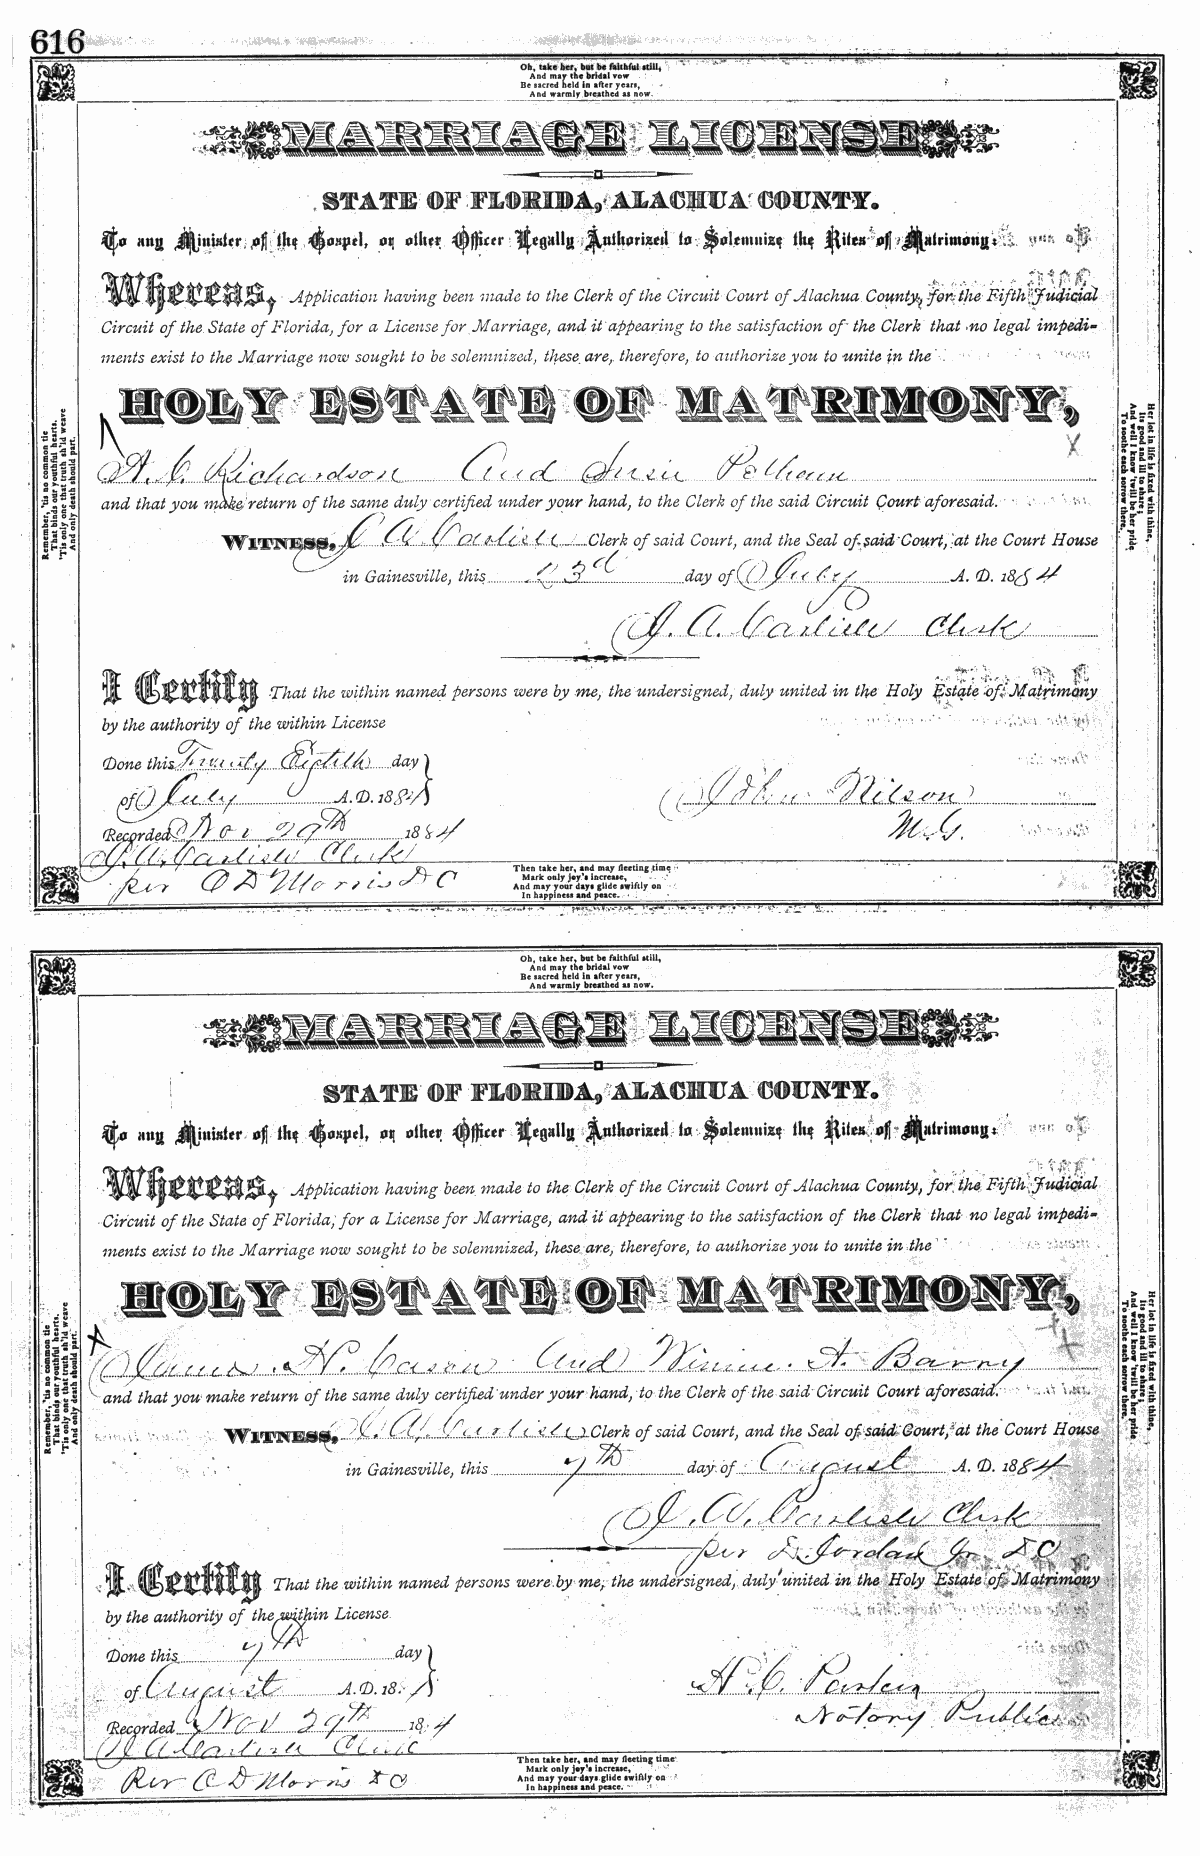 616
Oh, take her, but be faithful still,
And may the bridal vow
Be sacred held in after years,
And warmly breathed as now.
MARRIAGE LICENSE
STATE OF FLORIDA, ALACHUA COUNTY.
To any Minister of the Gospel, or other Officer Legally Authorized to Solemnize the Rites of Matrimony:
Whereas, Application having been made to the Clerk of the Circuit Court of Alachua County, for the Fifth Judicial
Circuit of the State of Florida, for a License for Marriage, and it appearing to the satisfaction of the Clerk that no legal impedi-
ments exist to the Marriage now sought to be solemnized, these are, therefore, to authorize you to unite in the
HOLY ESTATE OF MATRIMONY,
A. C. Richardson And Susie Pelham
and that you make return of the same duly certified under your hand, to the Clerk of the said Circuit Court aforesaid.
WITNESS, J A. Carlisle Clerk of said Court, and the Seal of said Court, at the Court House
in Gainesville, this 23d day of July A. D. 1884
J. A. Carlisle Clerk
I Certify That the within named persons were by me, the undersigned, duly united in the Holy Estate of Matrimony
by the authority of the within License
Done this Twenty Eighth day
of July A.D. 1884
John Wilson
M.G.
Recorded Nov 29th 1884
J. A. Carlisle Clerk
per C D Morris D C
Then take her, and may fleeting time
Mark only joy's increase,
And may your days glide swiftly on
In happiness and peace.
Remember, 'tis no common tie
That binds our youthful hearts,
'Tis only one that truth sh'ld weave
And only death should part.
Her lot in life is fixed with thine,
Its good and ill to share;
And well I know 'twill be her pride
To soothe each sorrow there.
Oh, take her, but be faithful still,
And may the bridal vow
Be sacred held in after years,
And warmly breathed as now.
MARRIAGE LICENSE
STATE OF FLORIDA, ALACHUA COUNTY.
To any Minister of the Gospel, or other Officer Legally Authorized to Solemnize the Rites of Matrimony:
Whereas, Application having been made to the Clerk of the Circuit Court of Alachua County, for the Fifth Judicial
Circuit of the State of Florida, for a License for Marriage, and it appearing to the satisfaction of the Clerk that no legal impedi-
ments exist to the Marriage now sought to be solemnized, these are, therefore, to authorize you to unite in the
HOLY ESTATE OF MATRIMONY,
James. H. Cason And Winnie. A. Barry
and that you make return of the same duly certified under your hand, to the Clerk of the said Circuit Court aforesaid.
WITNESS, J. A. Carlisle Clerk of said Court, and the Seal of said Court, at the Court House
in Gainesville, this 7th day of August A. D. 1884
J. A. Carlisle Clerk
per D. Jordan Jr. D C
I Certify That the within named persons were by me, the undersigned, duly united in the Holy Estate of Matrimony
by the authority of the within License
Done this 7th day
of August A.D. 18
H. C. Parker
Notary Public
Recorded Nov 29th 18 4
J A Carlisle Clerk
Per C D Morris D C
Then take her, and may fleeting time
Mark only joy's increase,
And may your days glide swiftly on
In happiness and peace.
Remember, 'tis no common tie
That binds our youthful hearts.
'Tis only one that truth sh'ld weave
And only death should part.
Her lot in life is fixed with thine,
Its good and ill to share;
And well I know 'twill be her pride
To soothe each sorrow there.